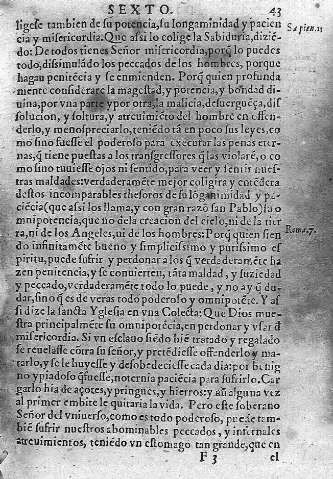 SEXTO. 43
ligese tambien de su potencia, su longaminidad y pacien
cia y misericordia. Que assi lo colige la Sabiduria, dizié- Sapien. 11
do: De todos tienes Señor misericordia, porq̃ lo puedes
todo, dissimulãdo los peccados de los hombres, porque
hagan peniteẽcia y se enmienden. Porq̃ quien profunda
mente considerare la magestad, y potencia, y bondad di
uina, por vna parte y por otra, la malicia, desuergueẽça, dis
solucion, y soltura, y atreuimiẽto del hombre en offen-
derlo, y menospreciarlo, teniẽdo tã en poco sus leyes, co
mo sino fuesse el poderoso para executar las penas eter-
nas, q̃ tiene puestas a los transgressores q̃ las violarẽ, o co
mo sino tuuiesse ojos ni sentido, para veer y sentir nues
tras maldades: verdaderamẽte mejor coligira y entẽdera
destos incomparables thesoros de su lõganimidad y pa-
ciẽcia (que assi los llama, y con gran razõ san Pablo) la o
omnipotencia, que no de la creacion del cielo, ni de la tier
ra, ni de los Angeles, ni de los hombres: Porq̃ quien sien Roma. 7.
do infinitamẽte bueno y simplicissimo y purissimo es
piritu, puede sufrir y perdonar a los q̃ verdaderamẽte ha
zen penitencia, y se conuierten, tãta maldad, y suziedad
y peccado, verdaderamẽte todo lo puede, y no ay q̃ du-
dar, sino q̃ es de veras todo poderoso y omnipotẽte. Y as
si dize la sancta Yglesia en vna Colecta: Que Dios mue
stra principalmẽte su omnipotẽcia, en perdonar y vsar d̃
misericordia. Si vn esclauo siẽdo biẽ tratado y regalado
se reuelasse cõtra su señor, y pretẽdiesse offenderlo y ma-
tarlo, y se le huyesse y desobedeciesse cada dia: por benig
no y piadoso q̃ fuesse, no ternia paciẽcia para sufrirlo. Car
garlo hia de açotes, y pringues, y hierros: y aũ alguna vez
al primer embite le quitaria la vida. Pero este soberano
Señor del vniuerso, como es todo poderoso, puede tam-
biẽ sufrir nuestros abominables peccados, y infernales
atreuimientos, teniẽdo vn estomago tan grande, que en
F 3 el